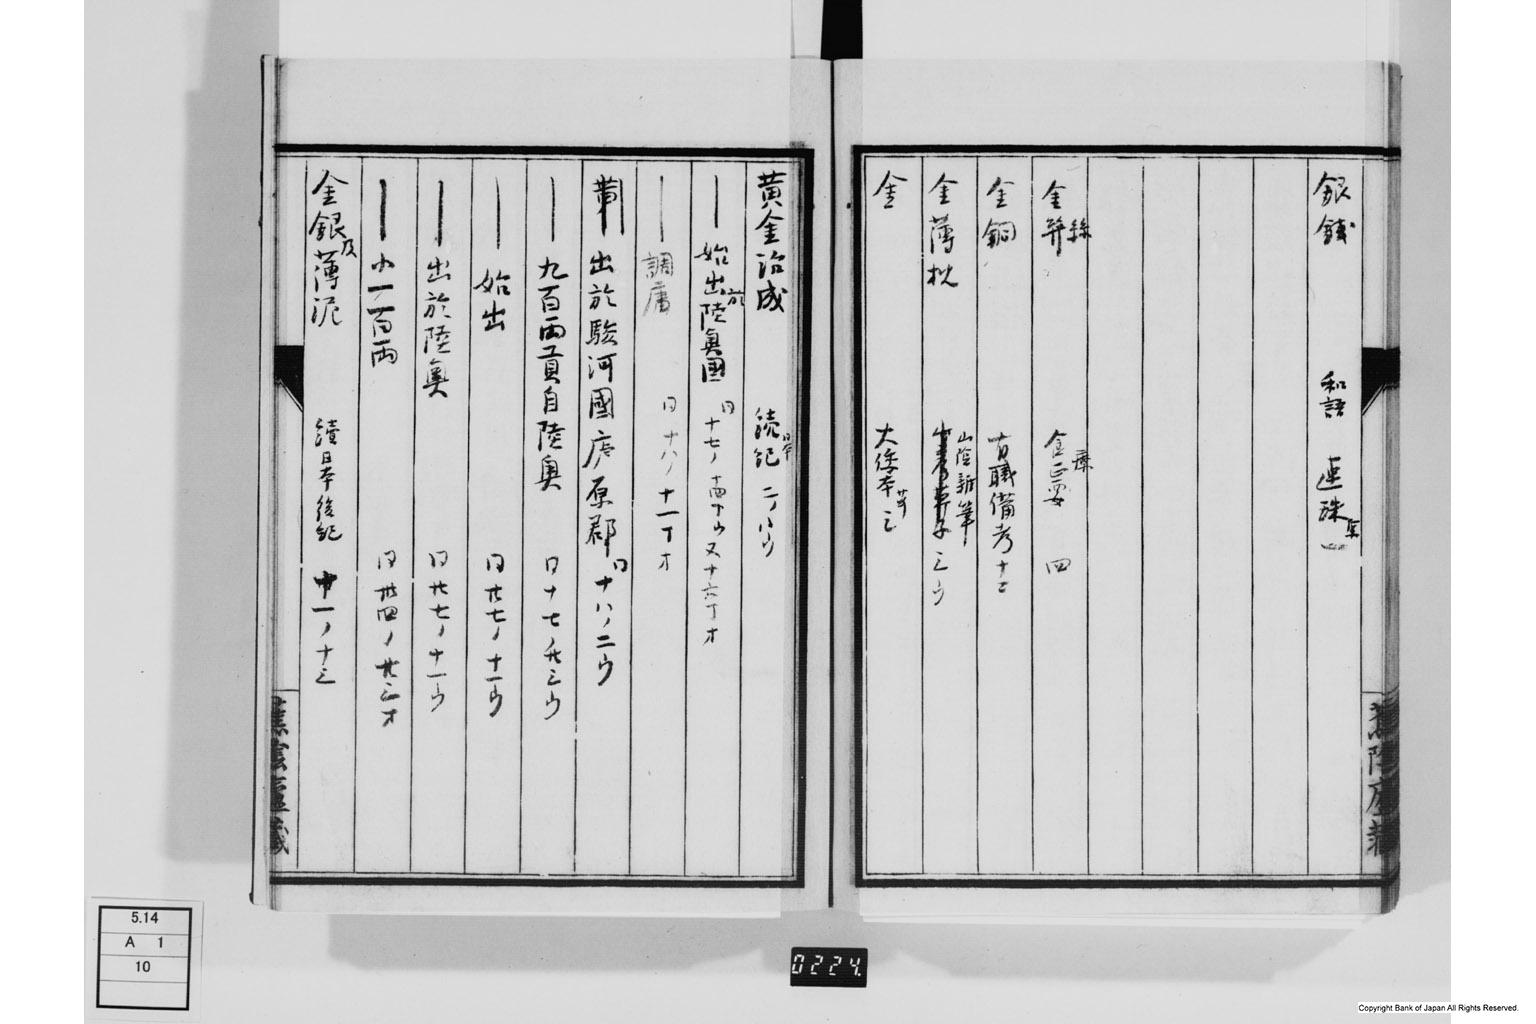 銀銭 和語 連珠集 一
金絲
金銅 有職備考 十二
金薄杖 山陰新筆 三ノウ
金
黄金治成 続日本紀 二ノ八ウ
│始出於陸奥國 同十七ノ
│調庸 同十八ノ十一丁オ
黄│出於駿河國庵原郡 同十八ノ二ウ
│九百両貢自陸奥 同十七ノ卅三ウ
│始出 同廿七ノ十一ウ
│出於陸奥 同廿七ノ十一ウ
│小一百両 同卅四ノ廿三オ
金銀及薄泥 續日本後紀 十一ノ十三
蕉陰廬蔵
5.14
A 1
10
0224.
Copyright Bank of Japan All Rights Reserved.